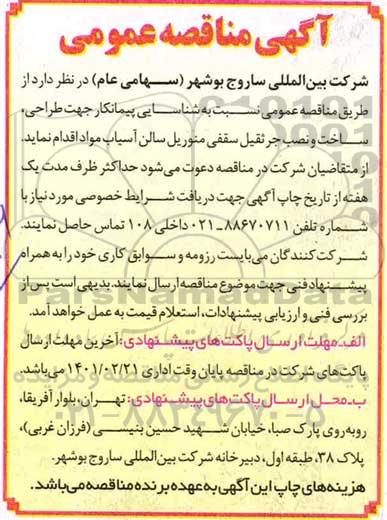 آگهی مناقصه عمومی
شرکت بین‌المللی ساروج بوشهر (سهامی عام) در نظر دارد از
طریق مناقصه عمومی نسبت به شناسایی پیمانکار جهت طراحی،
ساخت و نصب جرثقیل سقفی منوریل سالن آسیاب مواد اقدام نماید.
از متقاضیان شرکت در مناقصه دعوت می‌شود حداکثر ظرف مدت یک
هفته از تاریخ چاپ آگهی جهت دریافت شرایط خصوصی مورد نیاز با
شماره تلفن ۸۸۶۷۰۷۱۱-۰۲۱ داخلی ۱۰۸ تماس حاصل نمایند.
شرکت‌کنندگان می‌بایست رزومه و سوابق کاری خود را به همراه
پیشنهاد فنی جهت موضوع مناقصه ارسال نمایند. بدیهی است پس از
بررسی فنی و ارزیابی پیشنهادات، استعلام قیمت به عمل خواهد آمد.
الف-مهلت ارسال پاکت‌های پیشنهادی: آخرین مهلت ارسال
پاکت‌های شرکت در مناقصه پایان وقت اداری ۱۴۰۱/۰۲/۳۱ می‌باشد.
ب-محل ارسال پاکت‌های پیشنهادی: تهران، بلوار آفریقا،
روبه‌روی پارک صبا، خیابان شهید حسین بنیسی (فرزان غربی)،
پلاک ۳۸، طبقه اول، دبیرخانه شرکت بین‌المللی ساروج بوشهر.
هزینه‌های چاپ این آگهی به عهده برنده مناقصه می‌باشد.
ParsNamadData
۰۲۱-۸۸۳۴۹۶۷۰-۵